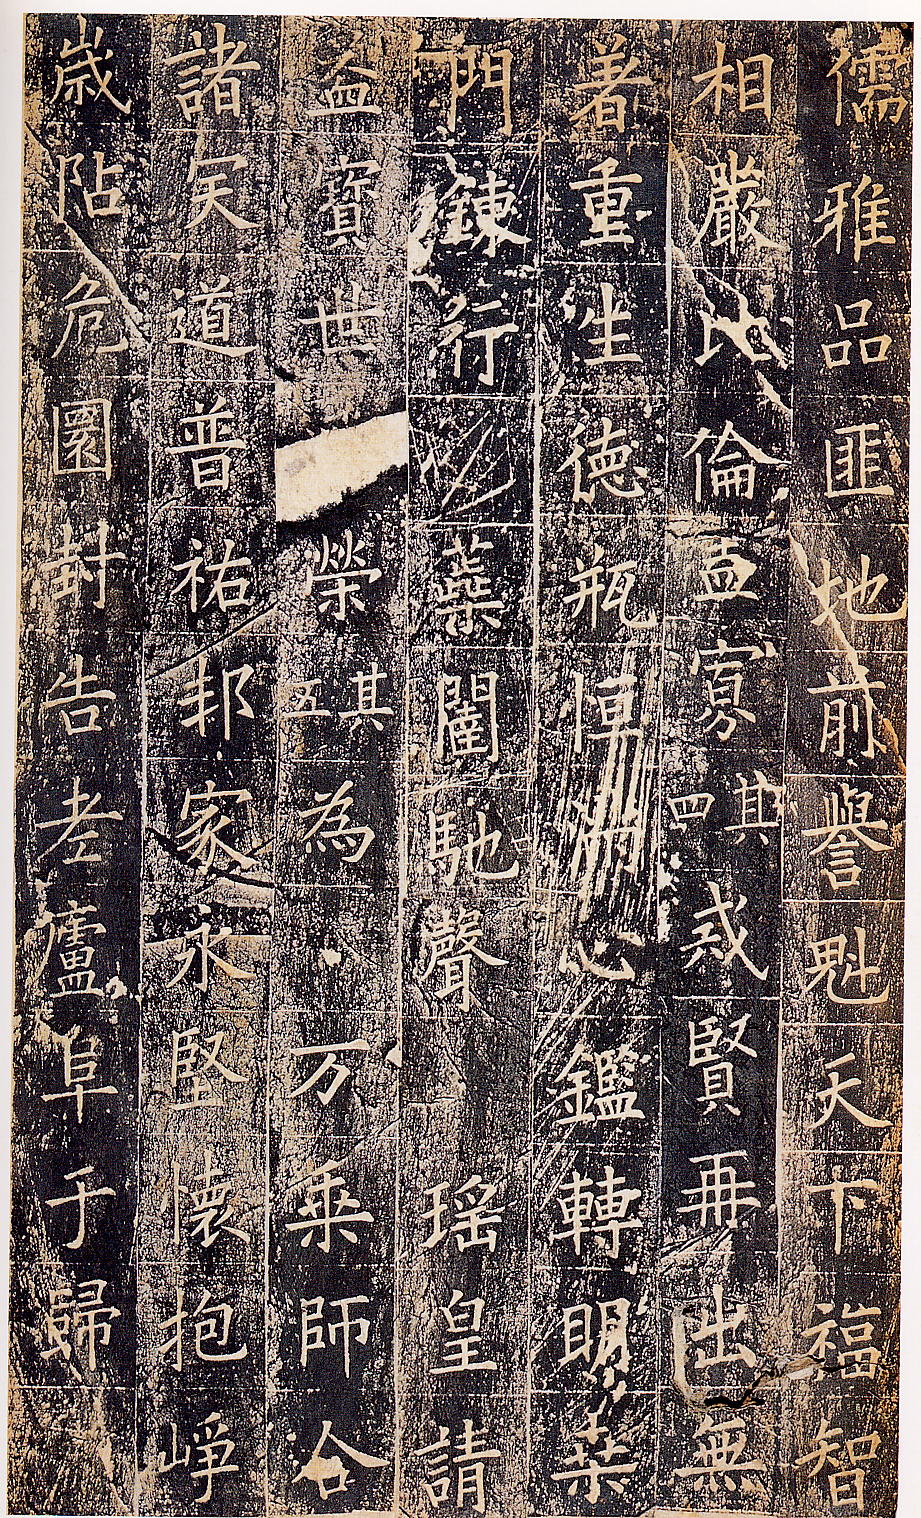 儒雅品匪地前譽魁天下福智
相嚴比倫盖寡其四戒賢再出無
著重生德瓶恒心鑑轉明葉
門鍊行蘂闈馳聲瑤皇請
益寳世榮其五為万乘師合
諸矣道普祐邦家永堅懷抱崢
嵗阽危圜封告老廬阜于歸